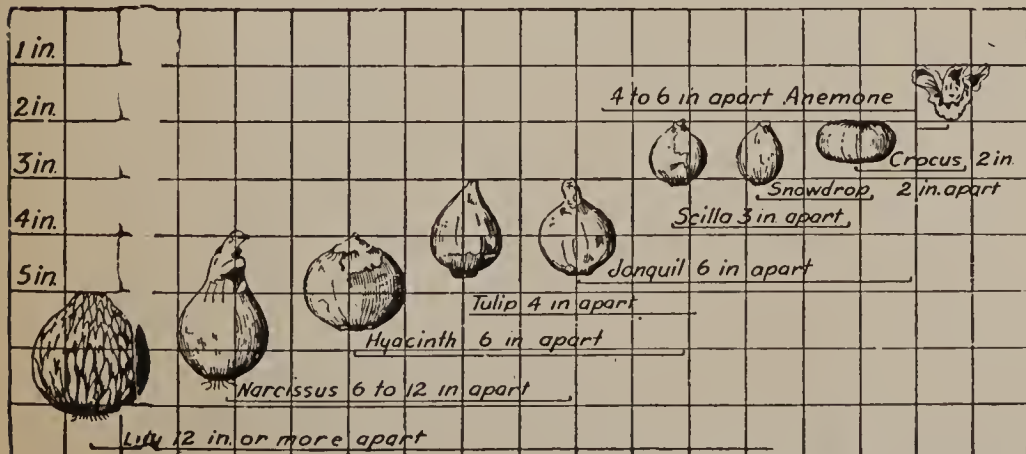 1 in.
2 in.
3 in.
4 in.
5 in.
4 to 6 in apart Anemone
Crocus, 2 in.
Snowdrop 2 in. apart
Scilla 3 in apart
Jonquil 6 in apart
Tulip 4 in apart
Hyacinth 6 in apart
Narcissus 6 to 12 in apart
Lily 12 in. or more apart